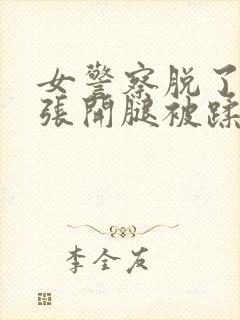 女警察脱了
张開腿被蹂
李全友